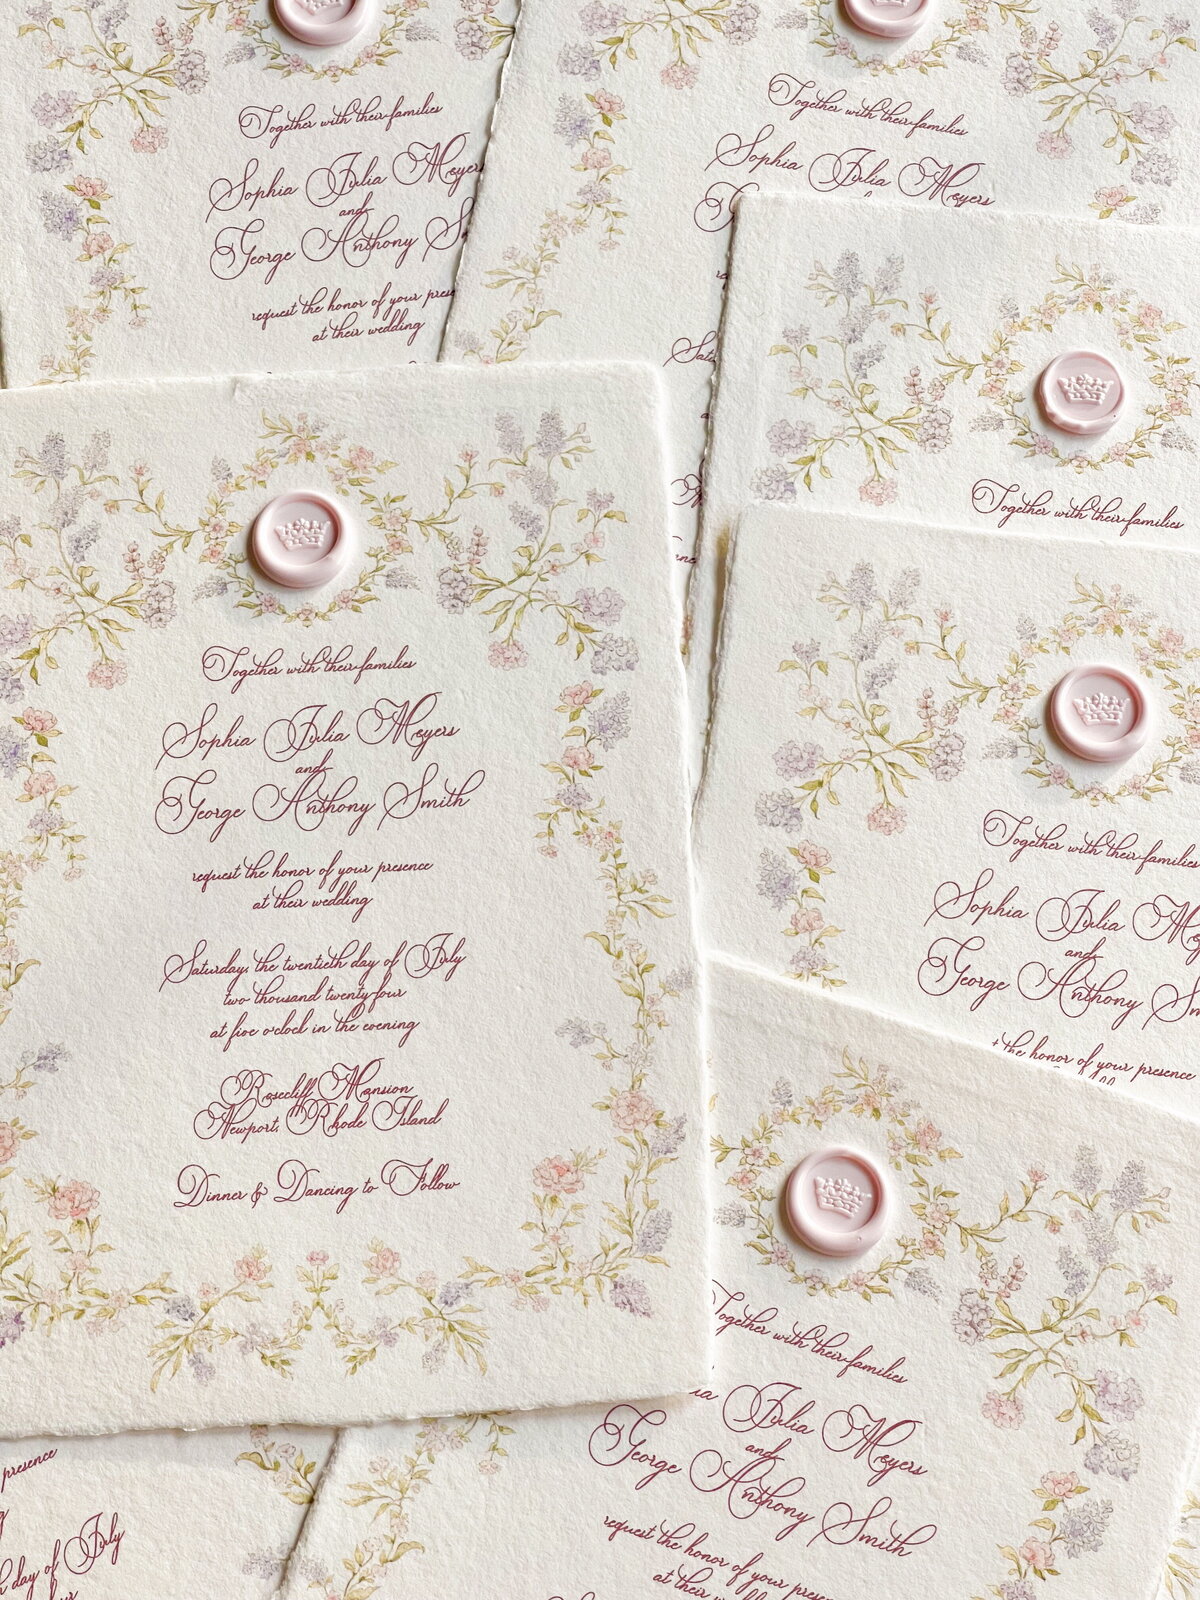 Together with their families
Sophia Julia Meyers
and
George Anthony S
request the honor of your pres
at their wedding
Together with their families
Sophia Julia Meyers
Together with their families
Together with their families
Sophia Julia Meyers
and
George Anthony Smith
request the honor of your presence
at their wedding
Saturday, the twentieth day of July
two thousand twenty-four
at five o'clock in the evening
Rosecliff Mansion
Newport, Rhode Island
Dinner & Dancing to Follow
Together with their families
Sophia Julia Me
and
George Anthony Sm
the honor of your presence
Together with their families
ia Julia Meyers
and
George Anthony Smith
request the honor of your prese
at their w
presence
h day of July